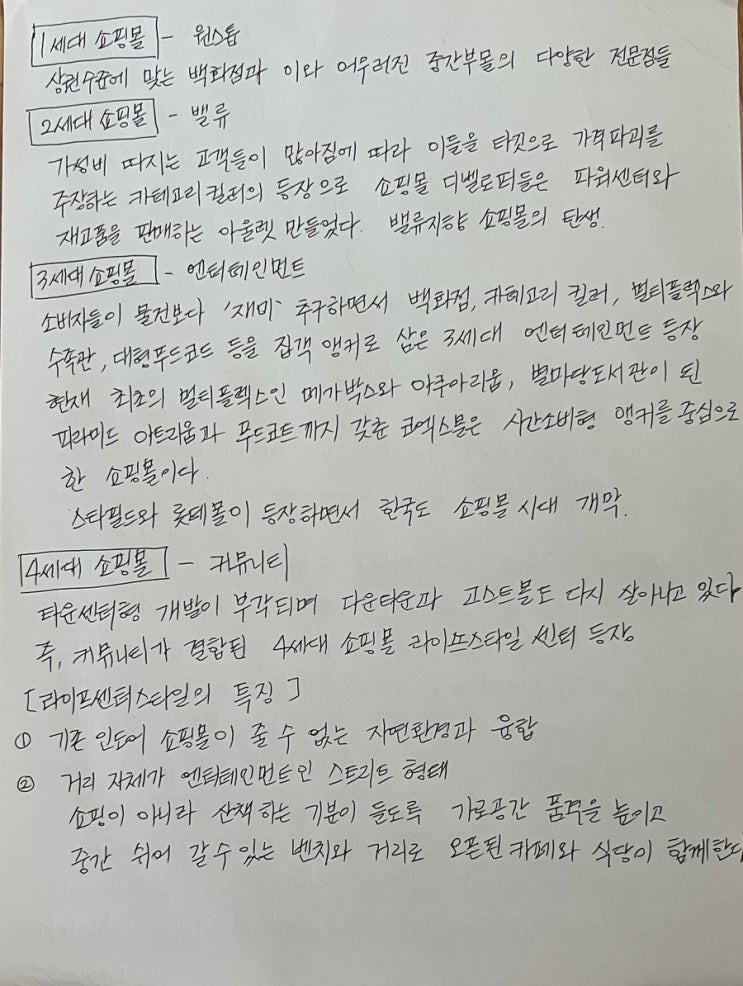 1세대 쇼핑몰 - 원스톱
상권수준에 맞는 백화점과 이와 어우러진 중간부몰의 다양한 전문점들
2세대 쇼핑몰 - 밸류
가성비 따지는 고객들이 많아짐에 따라 이들을 타깃으로 가격파괴를
주장하는 카테고리킬러의 등장으로 쇼핑몰 디벨로퍼들은 파워센터와
재고품을 판매하는 아울렛 만들었다. 밸류지향 쇼핑몰의 탄생.
3세대 쇼핑몰 - 엔터테인먼트
소비자들이 물건보다 '재미' 추구하면서 백화점, 카테고리 킬러, 멀티플렉스와
수족관, 대형푸드코드 등을 집객 앵커로 삼은 3세대 엔터테인먼트 등장
현재 최초의 멀티플렉스인 메가박스와 아쿠아리움, 별마당도서관이 된
피라미드 아트리움과 푸드코트까지 갖춘 코엑스몰은 시간소비형 앵커를 중심으로
한 쇼핑몰이다.
스타필드와 롯데몰이 등장하면서 한국도 쇼핑몰 시대 개막.
4세대 쇼핑몰 - 커뮤니티
타운센터형 개발이 부각되며 다운타운과 고스트몰도 다시 살아나고 있다
즉, 커뮤니티가 결합된 4세대 쇼핑몰 라이프스타일 센터 등장
[라이프센터스타일의 특징]
① 기존 인도어 쇼핑몰이 줄 수 없는 자연환경과 융합
② 거리 자체가 엔터테인먼트인 스트리트 형태
쇼핑이 아니라 산책하는 기분이 들도록 가로공간 품격을 높이고
중간 쉬어 갈 수 있는 벤치와 거리로 오픈된 카페와 식당이 함께한다